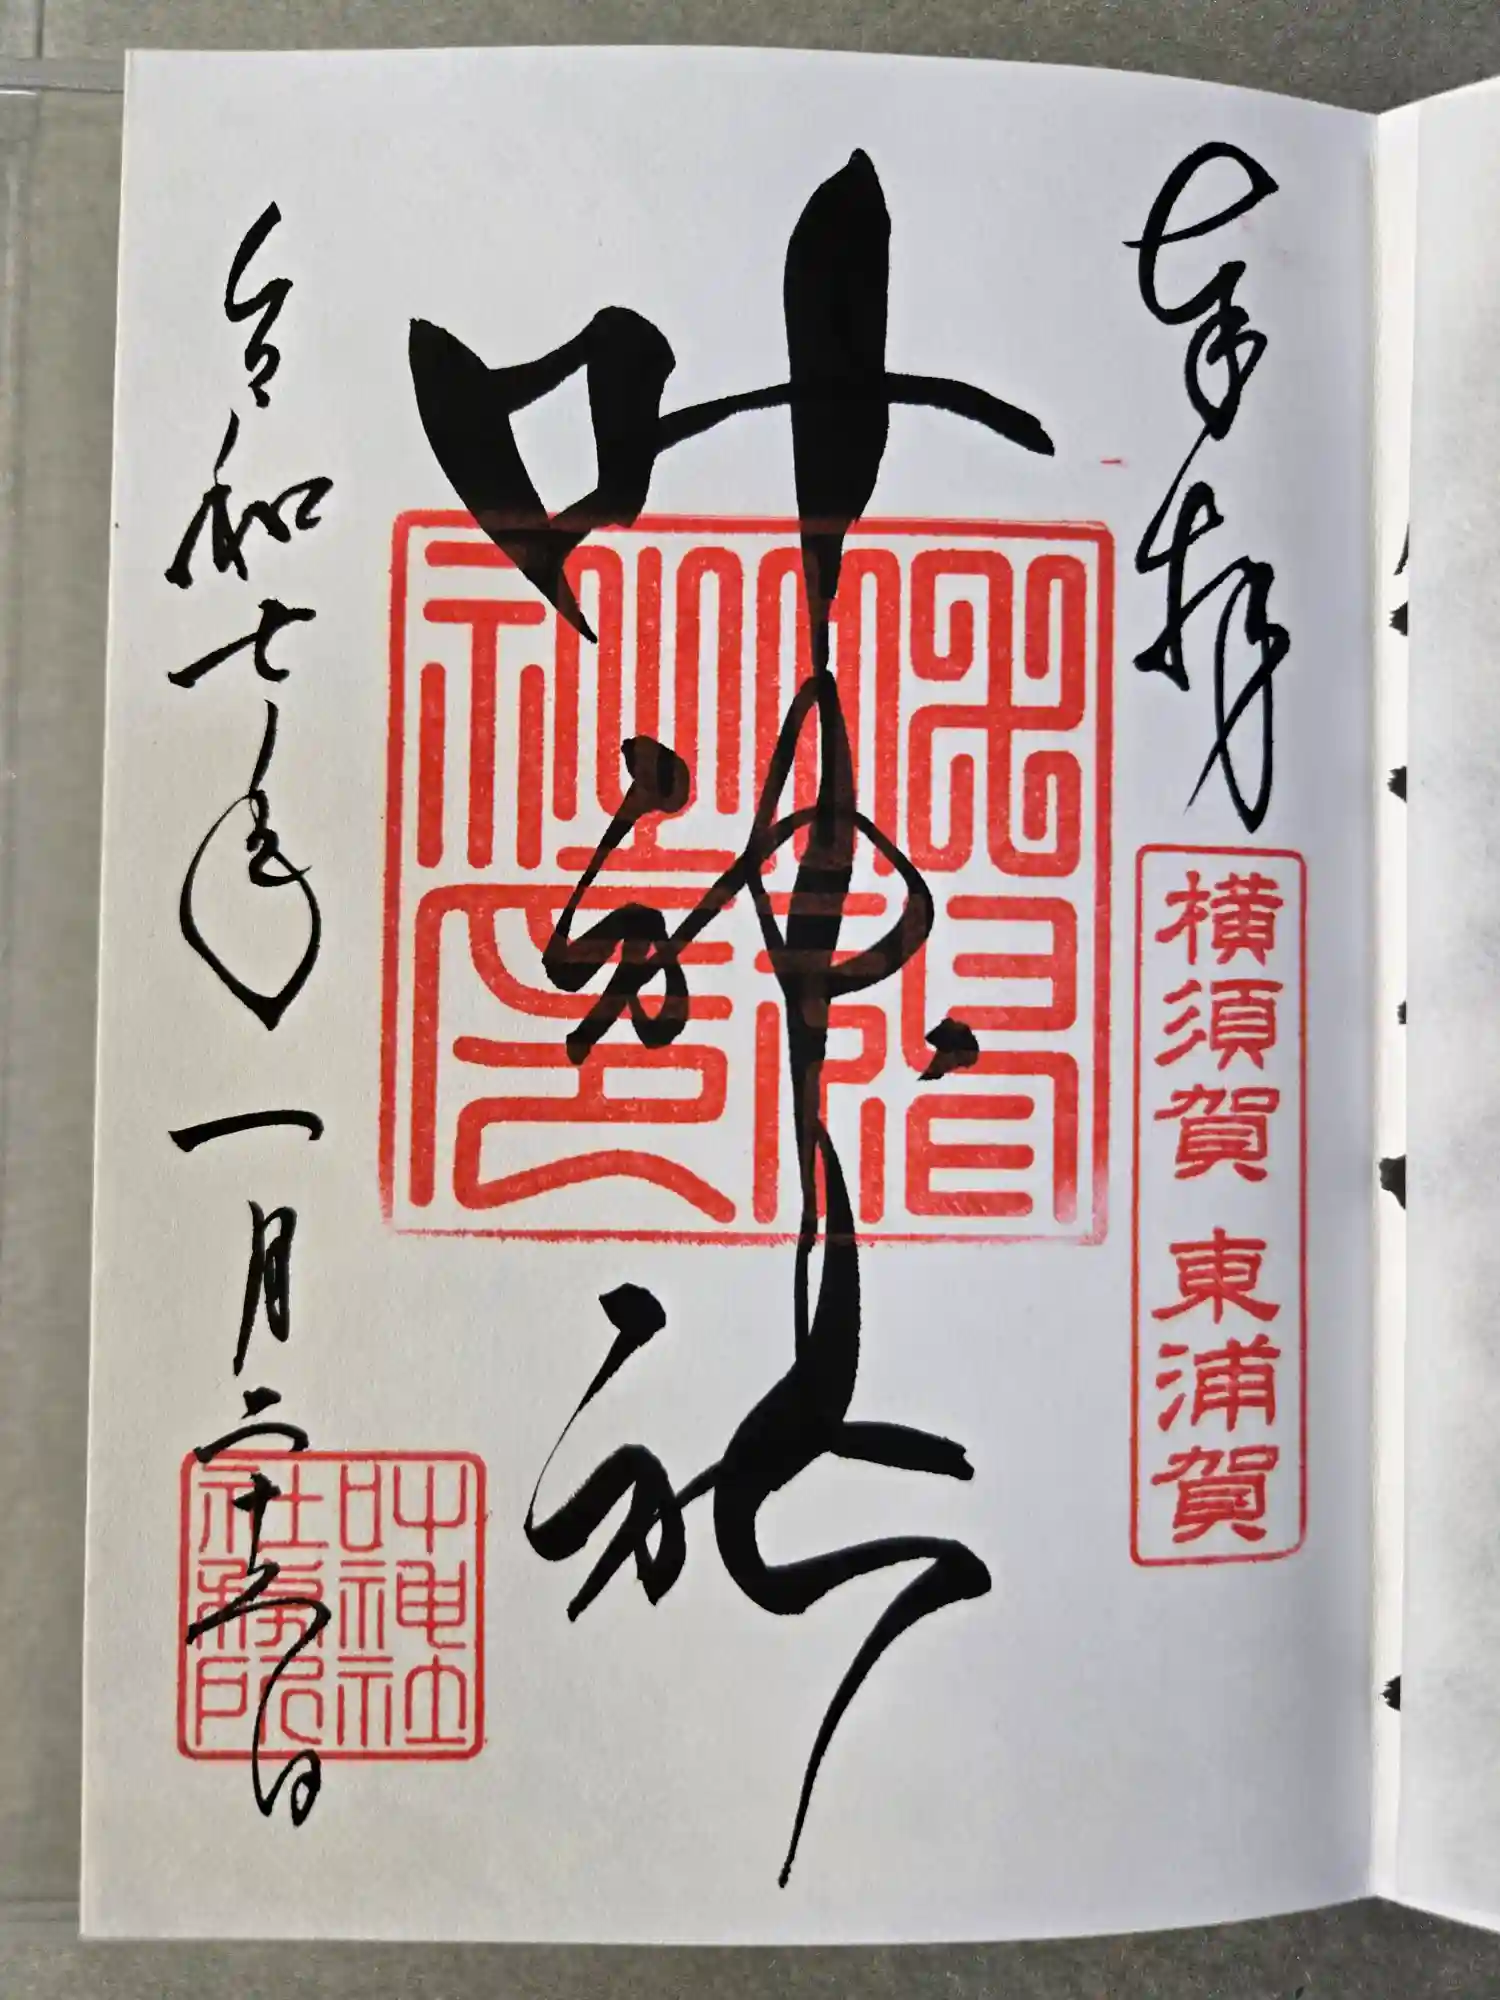 奉拝
横須賀 東浦賀
叶神社
令和七年一月二十六日
叶神社
社務所